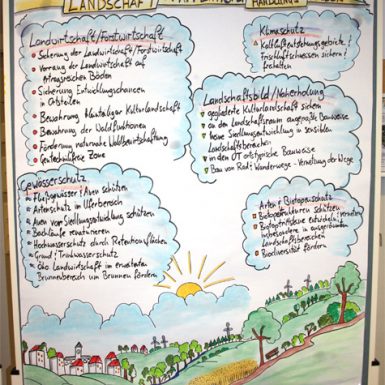 LANDSCHAFT
Landwirtschaft/Forstwirtschaft
Sicherung der Landwirtschaft/Forstwirtschaft
Vorrang der Landwirtschaft auf
ertragreichen Böden
Sicherung Entwicklungschancen
in Ortsteilen
Bewahrung kleinteiliger Kulturlandschaft
Bewahrung der Waldfunktionen
Förderung naturnahe Waldbewirtschaftung
Gentechnikfreie Zone
Klimaschutz
Kaltluftentstehungsgebiete +
Frischluftschneisen sichern +
freihalten
Landschaftsbild/Naherholung
gegliederte Kulturlandschaft sichern
an den Landschaftsraum angepaßte Bauweise
keine Siedlungsentwicklung in sensiblen
Landschaftsbereichen
in den OT ortstypische Bauweise
Bau von Rad + Wanderwege - Vernetzung der Wege
Gewässerschutz
Flußgewässer + Auen schützen
Artenschutz im Uferbereich
Auen vor Siedlungsnutzung schützen
Bachläufe renaturieren
Hochwasserschutz durch Retentionsflächen
Grund + Trinkwasserschutz
Öko Landwirtschaft im
Brunnenbereich um Brunnen fördern
Arten + Biotopenschutz
Biotopstrukturen schützen
Biotopstrukturen entwickeln + vernetzen
insbesondere in ausgeräumten
Landschaftsbereichen
Biodiversität fördern